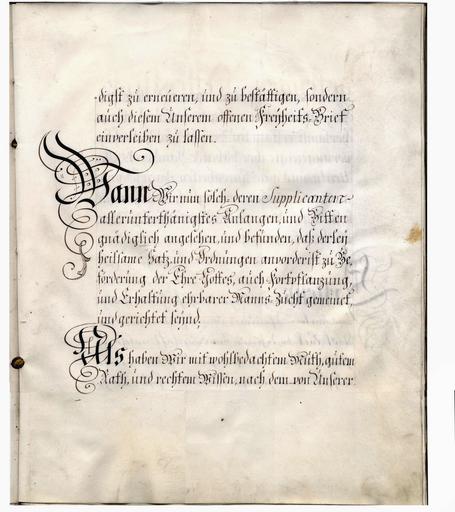 -digst zu erneüeren, und zu bestättigen, sondern
auch diesem Unserem offenen Freyheits-Brief
einverleiben zu lassen.
Wann Wir nun solch-deren Supplicanten
allerunterthänigstes Anlangen, und Bitten
gnädiglich angesehen, und befunden, daß derleÿ
heilsame Satz, und Ordnungen anvorderist zu Be„
förderung der Ehre Gottes, auch Fortpflanzung,
und Erhaltung ehrbarer Manns-Zucht gemeinet,
und gerichtet seÿnd,
Als haben Wir mit wohlbedachtem Muth, gutem
Rath, und rechtem Wissen, nach dem von Unserer